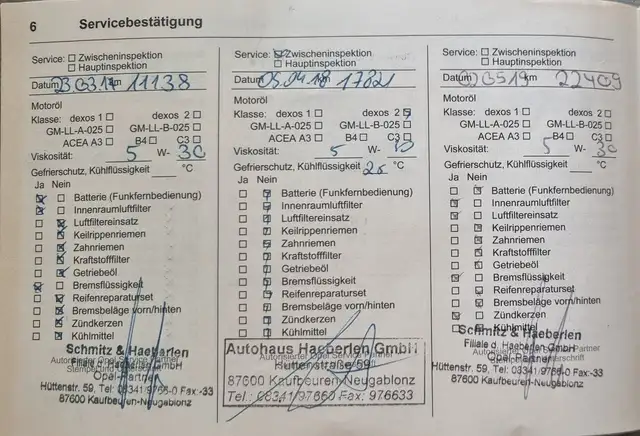 6 Servicebestätigung
Service: Zwischeninspektion
Hauptinspektion
Datum 23 03.17 km 11138
Motoröl
Klasse: dexos 1 dexos 2
GM-LL-A-025 GM-LL-B-025
ACEA A3 B4 C3
Viskosität: 5 W- 30
Gefrierschutz, Kühlflüssigkeit °C
Ja Nein
Batterie (Funkfernbedienung)
Innenraumluftfilter
Luftfiltereinsatz
Keilrippenriemen
Zahnriemen
Kraftstofffilter
Getriebeöl
Bremsflüssigkeit
Reifenreparaturset
Bremsbeläge vorn/hinten
Zündkerzen
Kühlmittel
Schmitz & Haeberlen
Autorisierter Opel Service Partner
Filiale d. Haeberlen GmbH
Opel-Partner
Hüttenstr. 59, Tel. 08341/9766-0 Fax:-33
87600 Kaufbeuren-Neugablonz
Service: Zwischeninspektion
Hauptinspektion
Datum 05.04.18 km
Motoröl
Klasse: dexos 1 dexos 2
GM-LL-A-025 GM-LL-B-025
ACEA A3 B4 C3
Viskosität: 5 W-
Gefrierschutz, Kühlflüssigkeit °C
Ja Nein
Batterie (Funkfernbedienung)
Innenraumluftfilter
Luftfiltereinsatz
Keilrippenriemen
Zahnriemen
Kraftstofffilter
Getriebeöl
Bremsflüssigkeit
Reifenreparaturset
Bremsbeläge vorn/hinten
Zündkerzen
Kühlmittel
Autohaus Haeberlen GmbH
Autorisierter Opel Service Partner
Hüttenstraße 59
87600 Kaufbeuren-Neugablonz
Tel.: 08341/97660 Fax: 976633
Service: Zwischeninspektion
Hauptinspektion
Datum km 22409
Motoröl
Klasse: dexos 1 dexos 2
GM-LL-A-025 GM-LL-B-025
ACEA A3 B4 C3
Viskosität: 5 W- 30
Gefrierschutz, Kühlflüssigkeit °C
Ja Nein
Batterie (Funkfernbedienung)
Innenraumluftfilter
Luftfiltereinsatz
Keilrippenriemen
Zahnriemen
Kraftstofffilter
Getriebeöl
Bremsflüssigkeit
Reifenreparaturset
Bremsbeläge vorn/hinten
Zündkerzen
Kühlmittel
Schmitz & Haeberlen
Autorisierter Opel Service Partner
Filiale d. Haeberlen GmbH
Opel-Partner
Hüttenstr. 59, Tel. 08341/9766-0 Fax:-33
87600 Kaufbeuren-Neugablonz